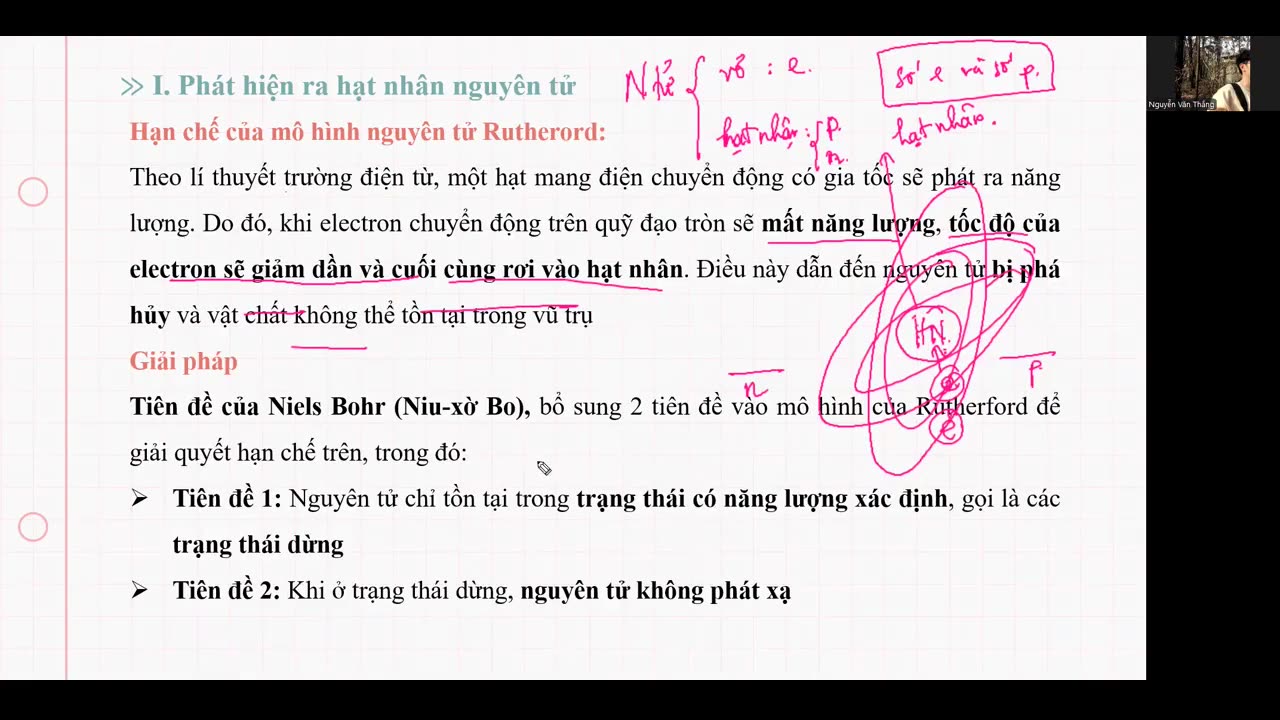 I. Phát hiện ra hạt nhân nguyên tử
Hạn chế của mô hình nguyên tử Rutherord:
Theo lí thuyết trường điện từ, một hạt mang điện chuyển động có gia tốc sẽ phát ra năng
lượng. Do đó, khi electron chuyển động trên quỹ đạo tròn sẽ mất năng lượng, tốc độ của
electron sẽ giảm dần và cuối cùng rơi vào hạt nhân. Điều này dẫn đến nguyên tử bị phá
hủy và vật chất không thể tồn tại trong vũ trụ
Giải pháp
Tiên đề của Niels Bohr (Niu-xờ Bo), bổ sung 2 tiên đề vào mô hình của Rutherford để
giải quyết hạn chế trên, trong đó:
Tiên đề 1: Nguyên tử chỉ tồn tại trong trạng thái có năng lượng xác định, gọi là các
trạng thái dừng
Tiên đề 2: Khi ở trạng thái dừng, nguyên tử không phát xạ
vỏ : e.
hạt nhân : p.
n.
số e và số p.
hạt nhân.
HN
e
e
n
p
Nguyễn Văn Thắng